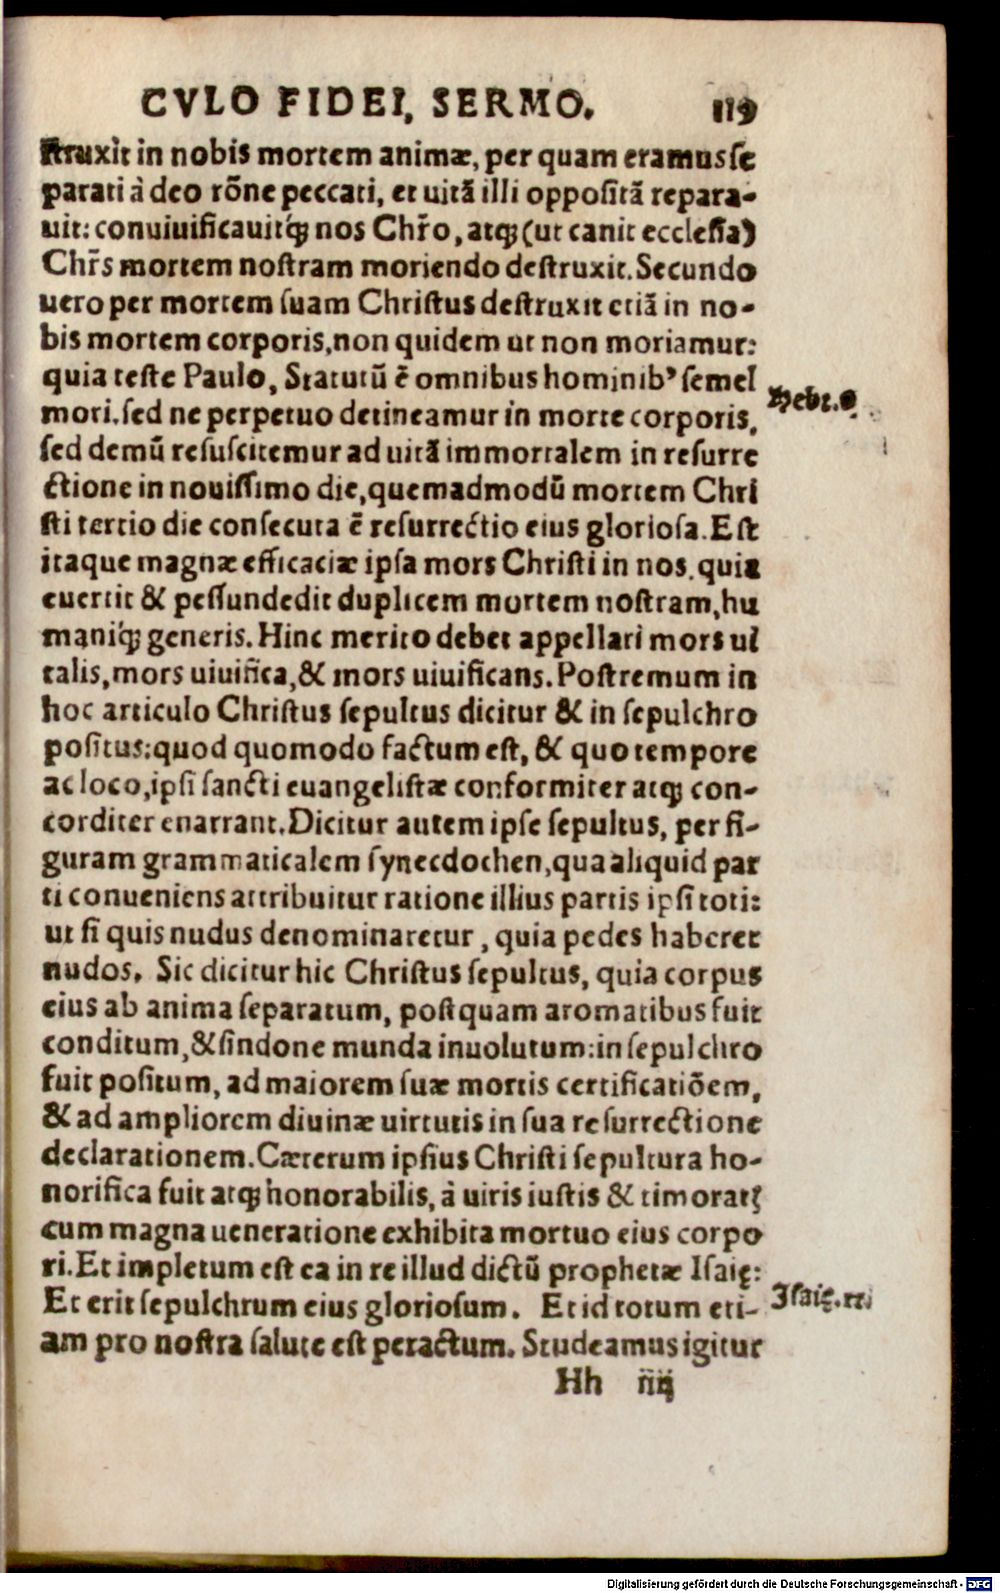 CVLO FIDEI, SERMO. 119
ſtruxit in nobis mortem animæ, per quam eramus ſe
parati à deo rõne peccati, et uitã illi oppoſitã repara-
uit: conuiuificauitq́ꝫ nos Chr̃o, atqꝫ (ut canit eccleſia)
Chr̃s mortem noſtram moriendo deſtruxit. Secundo
uero per mortem ſuam Chriſtus deſtruxit etiã in no-
bis mortem corporis, non quidem ut non moriamur:
quia teſte Paulo, Statutũ ẽ omnibus hominibꝰ ſemel
Hebr. 9
mori. ſed ne perpetuo detineamur in morte corporis,
ſed demũ reſuſcitemur ad uitã immortalem in reſurre
ctione in nouiſſimo die, quemadmodũ mortem Chri
ſti tertio die conſecuta ẽ reſurrectio eius glorioſa. Eſt
itaque magnæ efficaciæ ipſa mors Chriſti in nos. quia
euertit & peſſundedit duplicem mortem noſtram, hu
maniq́ꝫ generis. Hinc merito debet appellari mors ui
talis, mors uiuifica, & mors uiuificans. Poſtremum in
hoc articulo Chriſtus ſepultus dicitur & in ſepulchro
poſitus: quod quomodo factum eſt, & quo tempore
ac loco, ipſi ſancti euangeliſtæ conformiter atqꝫ con-
corditer enarrant. Dicitur autem ipſe ſepultus, per fi-
guram grammaticalem ſynecdochen, qua aliquid par
ti conueniens attribuitur ratione illius partis ipſi toti:
ut ſi quis nudus denominaretur, quia pedes haberet
nudos. Sic dicitur hic Chriſtus ſepultus, quia corpus
eius ab anima ſeparatum, poſtquam aromatibus fuit
conditum, & ſindone munda inuolutum: in ſepulchro
fuit poſitum, ad maiorem ſuæ mortis certificatiõem,
& ad ampliorem diuinæ uirtutis in ſua reſurrectione
declarationem. Cæterum ipſius Chriſti ſepultura ho-
norifica fuit atqꝫ honorabilis, à uiris iuſtis & timoratꝭ
cum magna ueneratione exhibita mortuo eius corpo
ri. Et impletum eſt ea in re illud dictũ prophetæ Iſaię:
Et erit ſepulchrum eius glorioſum. Et id totum eti-
Iſaię. 11.
am pro noſtra ſalute eſt peractum. Studeamus igitur
Hh iiij
Digitalisierung gefördert durch die Deutsche Forschungsgemeinschaft - DFG